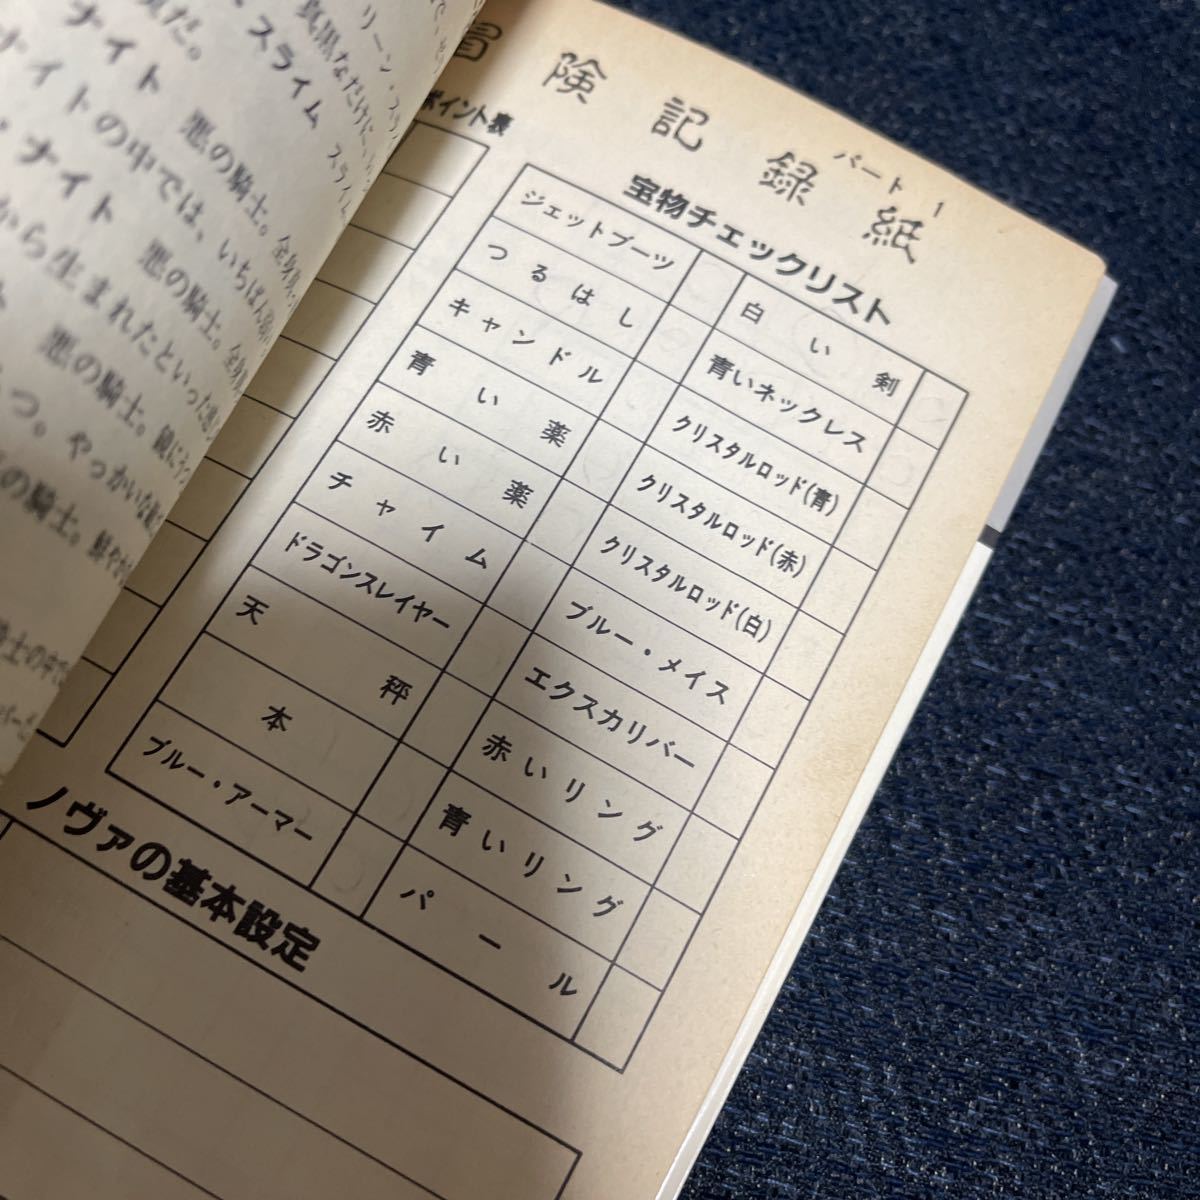 冒険記録紙
パート1
ポイント表
宝物チェックリスト
ジェットブーツ
つるはし
キャンドル
青い薬
赤い薬
チャイム
ドラゴンスレイヤー
天秤
本
ブルー・アーマー
白い剣
青いネックレス
クリスタルロッド(青)
クリスタルロッド(赤)
クリスタルロッド(白)
ブルー・メイス
エクスカリバー
赤いリング
青いリング
パール
ノヴァの基本設定
リーン・スラ
真黒なだけに
スライム スライム
だ。
ナイト 悪の騎士。全身
ナイトの中では、いちばん
ナイト 悪の騎士。全身
から生まれたといった
悪の騎士。
つ。やっかいな
の騎士。